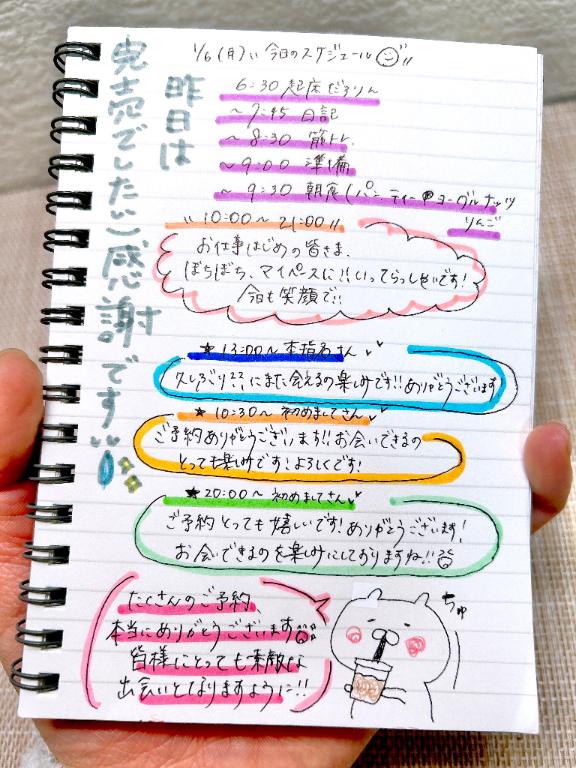 1/6(月) 今日のスケジュール
昨日は
完売でしたい感謝です!!
6:30 起床だろりん
~7:45 日記
~8:30 筋トレ
~9:00 準備
~9:30 朝食(パン、ティー、ヨーグルナッツ
りんご
"10:00~21:00"
お仕事はじめの皆さま、
ぼちぼち、マイペースに!!いってらっしゃいです!
今日も笑顔で!!
★13:00~本指名さん
久しぶり??にまた会えるの楽しみです!!ありがとうございます
★10:30~初めましてさん
ご予約ありがとうございます!!お会いできるの
とっても楽しみです!よろしくです!
★20:00~初めましてさん
ご予約とっても嬉しいです!ありがとうございます!
お会いできるのを楽しみにしておりますね!!
たくさんのご予約
本当にありがとうございます
皆様にとっても素敵な
出会いとなりますように!!
ちゅ